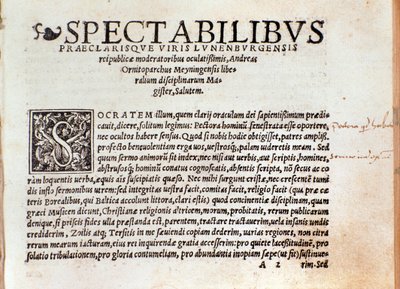 SPECTABILIBVS
PRAECLARISQVE VIRIS LVNENBVRGENSIS
reipublicæ moderatoribus oculatißimis, Andreas
Ornitoparchus Meyningensis libe-
ralium disciplinarum Ma-
gister, Salutem.
SOCRATEM illum, quem clarij oraculum dei sapientißimum prædi-
cauit, dicere, solitum legimus: Pectora hominũ fenestrata esse oportere,
nec ocultos habere sensus. Quod si nobis hodie obtigisset, patres ampliß.
profecto beneuolentiam erga uos, uestrosq́; palam uideretis meam. Sed
quum sermo animorũ sit index, nec nisi aut uerbis, aut scriptis, homines,
abstrusosq́; hominũ conatus cognoscatis, absentis scripta, nõ secus ac co
ram loquentis uerba, æquis uti suscipiatis quæso. Nec mihi surgit cristæ, nec crescentẽ tumi
dis insto sermonibus utrem: sed integritas uestra facit, comitas facit, religio facit (qua præ cæ
teris Borealibus, qui Baltica accolunt littora, clari estis) quod concinentiæ disciplinam, quam
græci Musicen dicunt, Christianæ religionis altricem, morum, probitatis, rerum publicarum
deniq́ue, si priscis fides ulla præstanda est, parentem, tractare tractauerim, uela insanis undis
crediderim, Zoilis atq́; Tersitis in me sæuiendi copiam dederim, uarias regiones, non citra
rerum mearum iacturam, eius rei inquirendæ gratia accesserim: pro quiete lacessitudinẽ, pro
solatio tribulationem, pro gloria contumeliam, pro abundantia inopiam sæpe (ut fit) sustinue-
A 2 rim. Sed